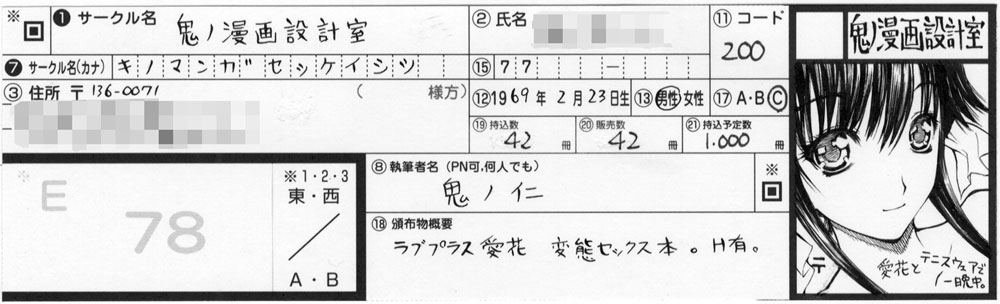 ※
❶ サークル名
鬼ノ漫画設計室
② 氏名
⑪ コード
200
❼ サークル名(カナ) キノマンガセッケイシツ
⑮ 77 —
③ 住所 〒136-0071
( 様方)
⑫ 1969年 2月 23日生 ⑬ 男性・女性 ⑰ A・B・C
⑲ 持込数
42 冊
⑳ 販売数
42 冊
㉑ 持込予定数
1.000 冊
※
E
78
※1・2・3
東・西
/
A・B
⑧ 執筆者名 (PN可,何人でも)
鬼ノ仁
※
⑱ 頒布物概要
ラブプラス愛花 変態セックス本。H有。
鬼ノ漫画設計室
愛花と
テニスウェアで
一晩中。